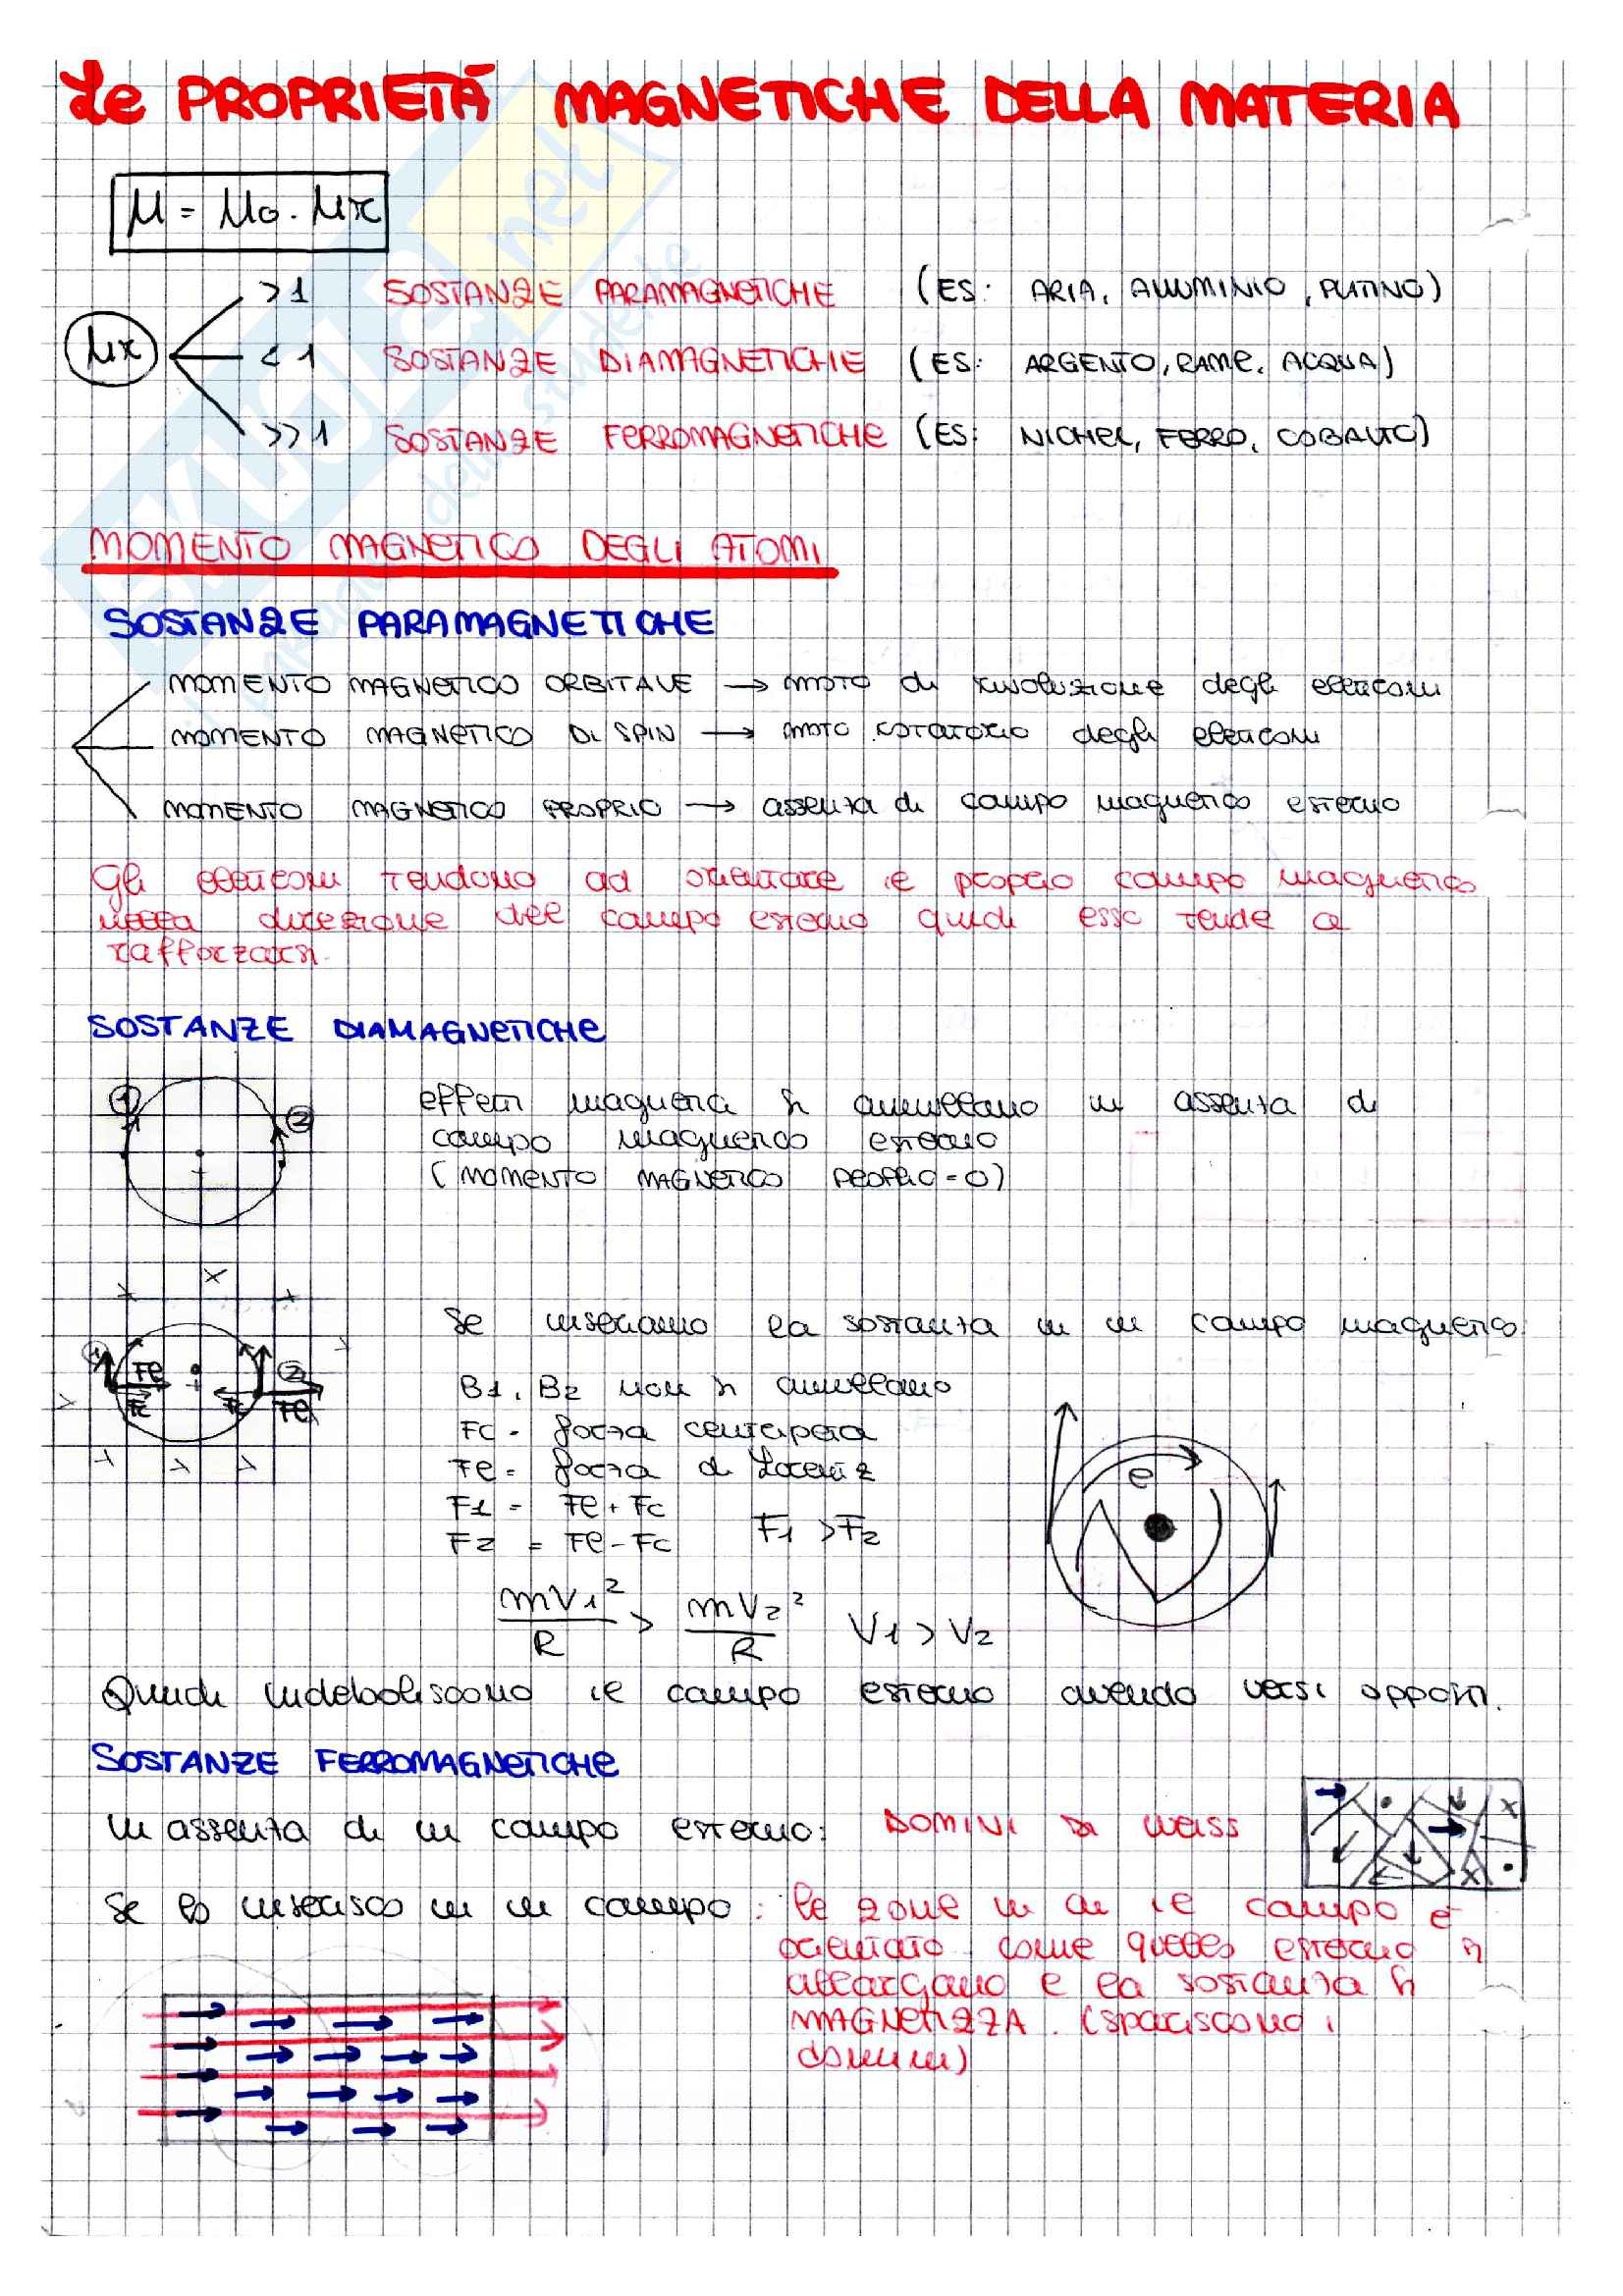 Le PROPRIETÀ MAGNETICHE DELLA MATERIA
μ = μ0 · μr
>1 SOSTANZE PARAMAGNETICHE (ES: ARIA, ALLUMINIO, PLATINO)
μr <1 SOSTANZE DIAMAGNETICHE (ES: ARGENTO, RAME, ACQUA)
>>1 SOSTANZE FERROMAGNETICHE (ES: NICHEL, FERRO, COBALTO)
MOMENTO MAGNETICO DEGLI ATOMI
SOSTANZE PARAMAGNETICHE
MOMENTO MAGNETICO ORBITALE → moto di rivoluzione degli elettroni
MOMENTO MAGNETICO DI SPIN → moto rotatorio degli elettroni
MOMENTO MAGNETICO PROPRIO → assenza di campo magnetico esterno
Gli elettroni tendono ad orientare il proprio campo magnetico
nella direzione del campo esterno quidi esso tende a
rafforzarsi.
SOSTANZE DIAMAGNETICHE
1 2
effetti magnetici si annullano in assenza di
campo magnetico esterno
(MOMENTO MAGNETICO PROPRIO = 0)
Se inseriamo la sostanza in un campo magnetico
1 Fe Fc Fc 2 Fe
B1, B2 non si annullano
Fc = forza centripeta
Fe = forza di Lorentz
F1 = Fe + Fc
F2 = Fe - Fc F1 > F2
e
mV1²/R > mV2²/R V1 > V2
Quindi indeboliscono il campo esterno avendo versi opposti.
SOSTANZE FERROMAGNETICHE
In assenza di un campo esterno: DOMINI DI WEISS
Se lo inserisco in un campo: le zone in cui il campo è
orientato come quello esterno si
allargano e la sostanza si
MAGNETIZZA. (spariscono i
domini)
SKUOLA.net
il paradiso dello studente